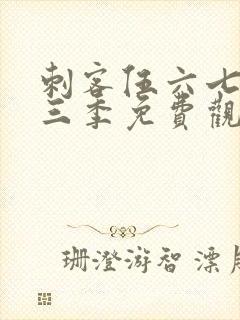 刺客伍六七
三季免費觀
珊澄游智 漂